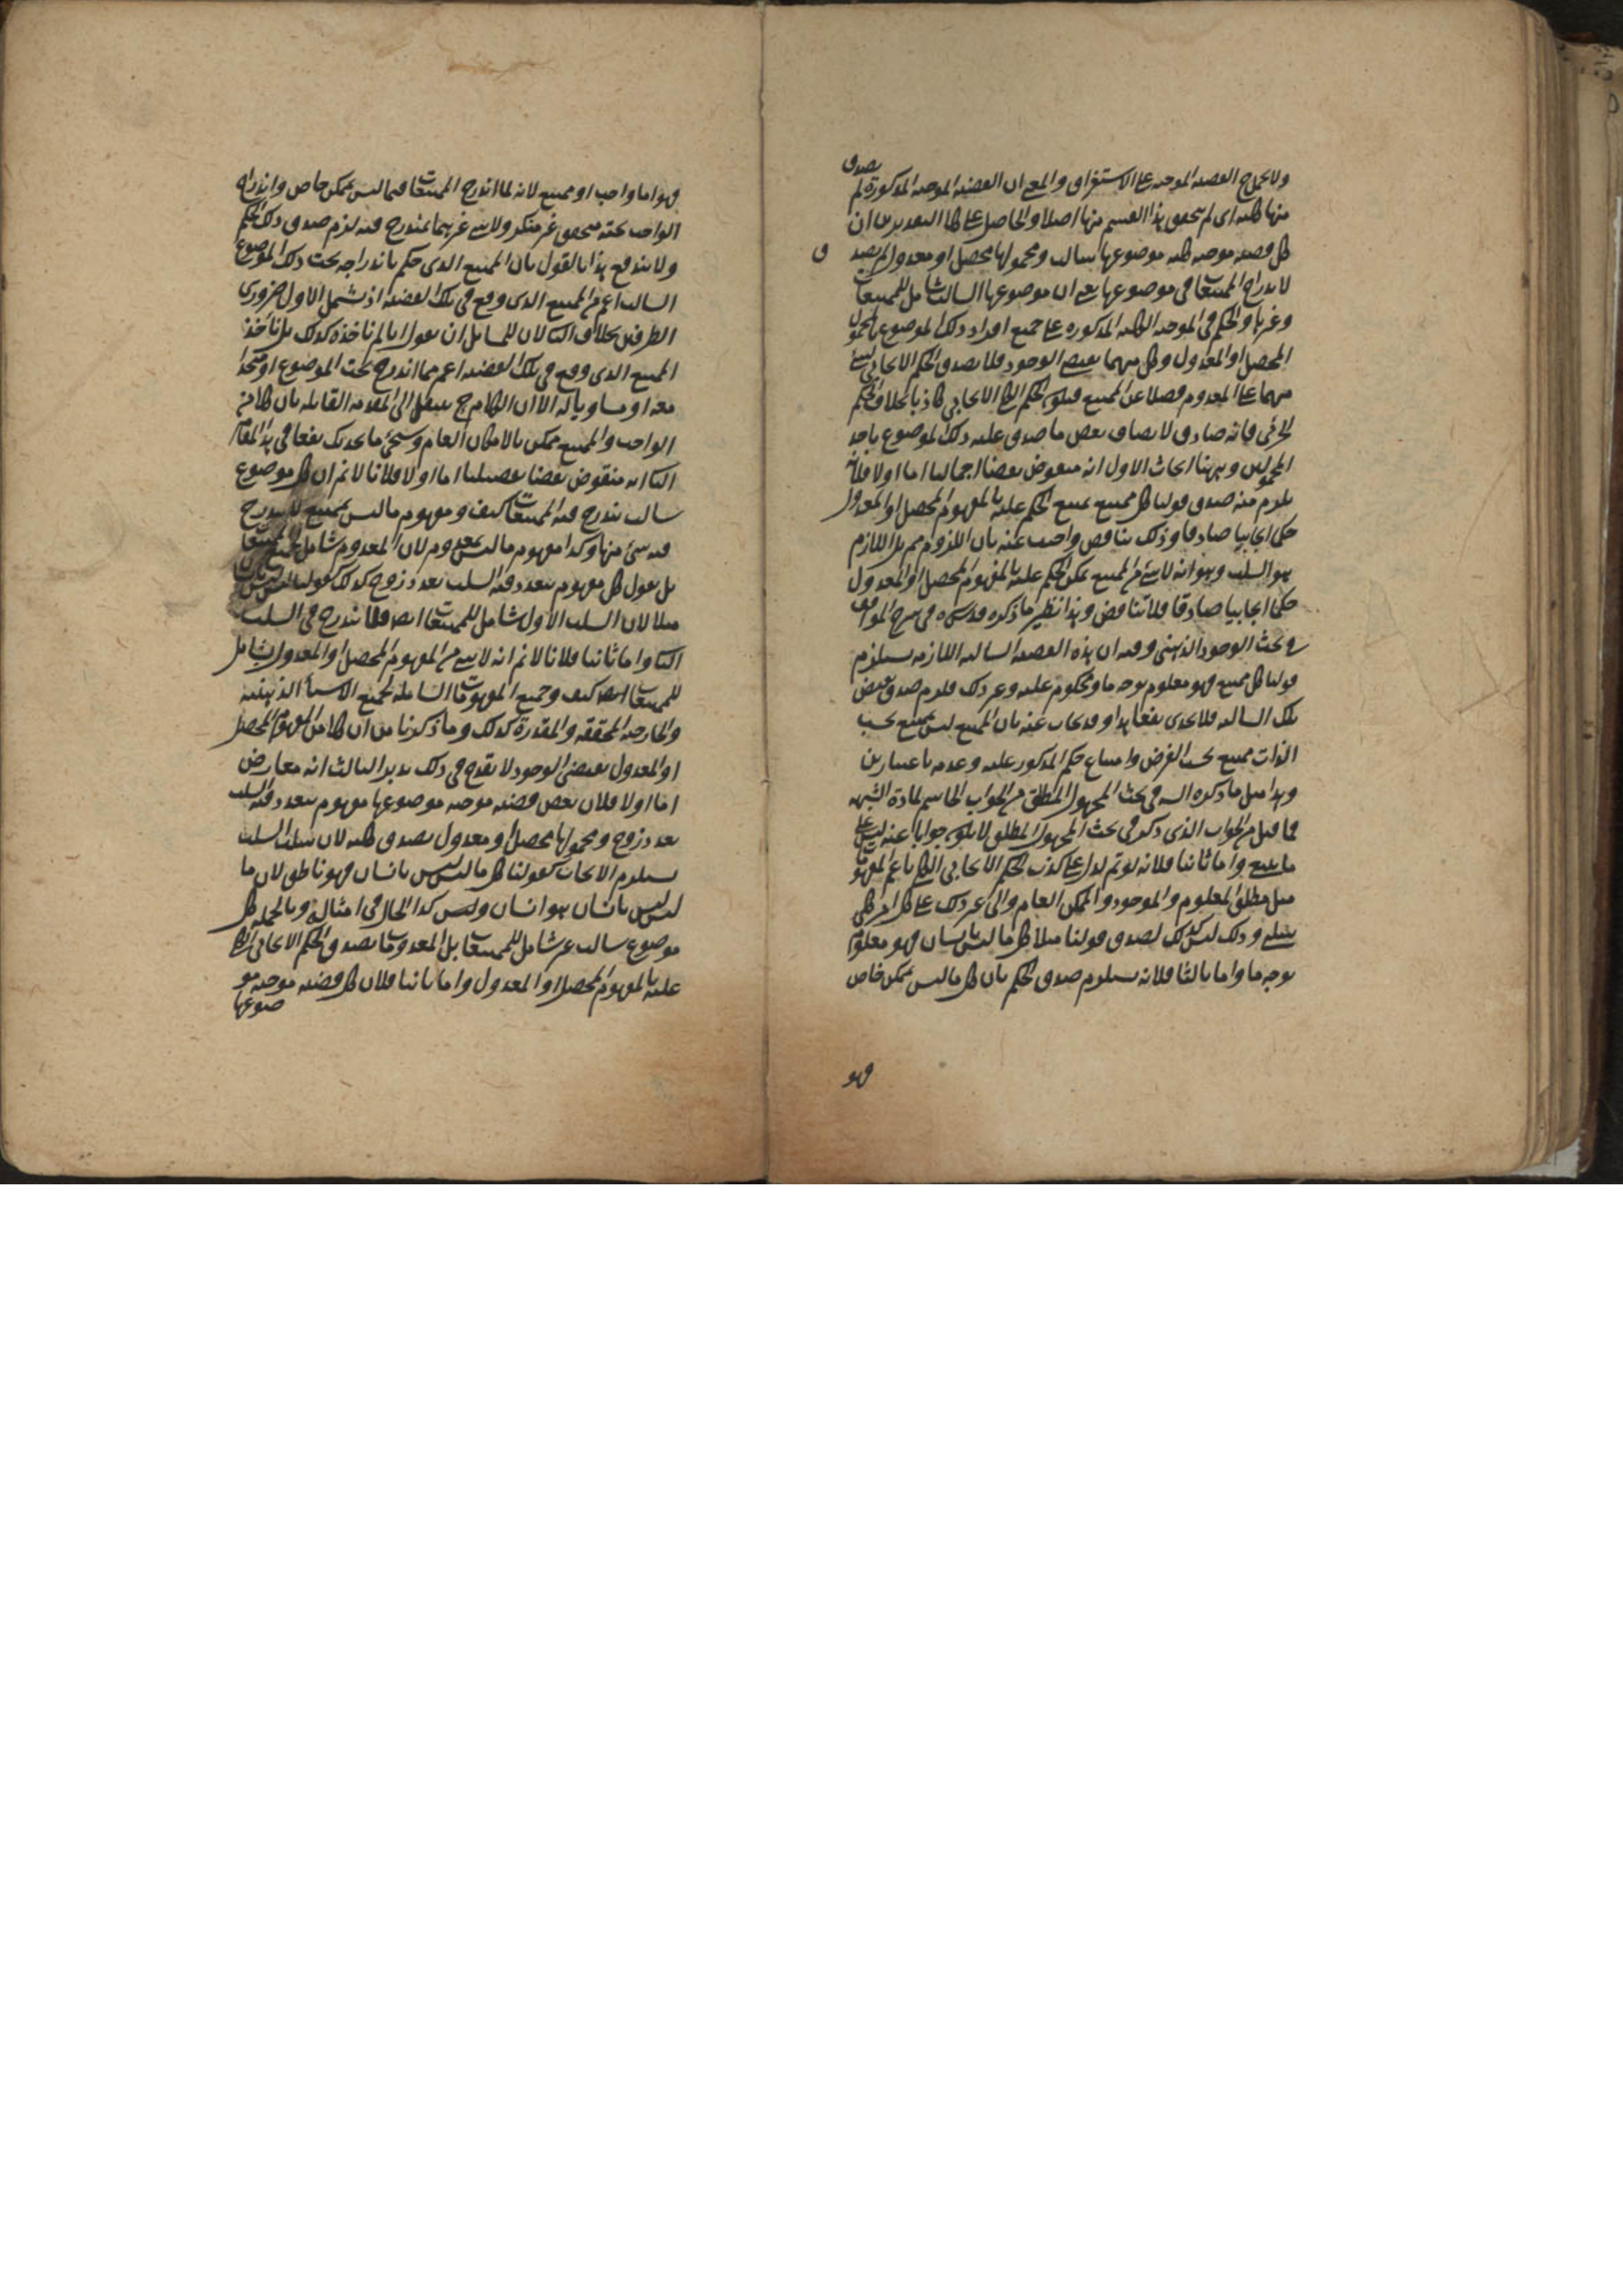 ولا يحمل ح القضية الموجبة على الاستغراق والمعنى ان القضية الموجبة المذكورة لم يصدق
منها كلية اى لم يتحقق هذا القسم منها اصلا والحاصل على كلا التقديرين ان
كل قضية موجبة كلية موضوعها سالب ومحمولها محصل او معدول لم يصدق
لاندراج الممتنعات فى موضوعها يعنى ان موضوعها السالب شامل للممتنعات
وغيرها والحكم فى الموجبة الكلية المذكورة على جميع افراد ذلك الموضوع بالمحمول
المحصل او المعدول وكل منهما يقتضى الوجود فلا يصدق الحكم الايجابى بشئ
منهما على المعدوم فضلا عن الممتنع فيكون الحكم الكلى الايجابى كاذبا بخلاف الحكم
الجزئى فانه صادق لاتصاف بعض ما صدق عليه ذلك الموضوع باحد
المحمولين وههنا ابحاث الاول انه منقوض نقضا اجماليا اما اولا فلانه
يلزم منه صدق قولنا كل ممتنع يمتنع الحكم عليه بالمفهوم المحصل او المعدول
حكما ايجابيا صادقا وذلك تناقض واجيب عنه بان اللزوم مم بل اللازم
هو السلب وهو انه لا شئ من الممتنع يمكن الحكم عليه بالمفهوم المحصل او المعدول
حكما ايجابيا صادقا فلا تناقض وهذا نظير ما ذكره قدس سره فى شرح المواقف
فى بحث الوجود الذهنى وفيه ان هذه القضية السالبة اللازمة يستلزم
قولنا كل ممتنع فهو معلوم بوجه ما ومحكوم عليه وغير ذلك فلزم صدق نقيض
تلك السالبة فلا يجدى نفعا هذا وقد يجاب عنه بان الممتنع ليس بممتنع بحسب
الذات ممتنع بحسب الفرض وامتناع حكم المذكور عليه وعدمه باعتبارين
وهذا مثل ما ذكره السيد فى بحث المجهول المطلق من الجواب الحاسم لمادة الشبهة
فما قيل من الجواب الذى ذكر فى بحث المجهول المطلق لا يكون جوابا عنه ليس على
ما ينبغى واما ثانيا فلانه لو تم لدل على كذب الحكم الايجابى الكلى باعم المفهومات
مثل مطلق المعلوم والموجود والممكن العام والى غير ذلك على كل امر كلى
سلبى وذلك ليس كذلك لصدق قولنا مثلا كل ما ليس بانسان فهو معلوم
بوجه ما واما ثالثا فلانه يستلزم صدق الحكم بان كل ما ليس بممكن خاص
فهو
فهو اما واجب او ممتنع لانه لما اندرج الممتنعات فيما ليس بممكن خاص واندراج
الواجب تحته متحقق غير منكر ولا شئ غيرهما يندرج فيه لزم صدق ذلك الحكم
ولا يندفع هذا بالقول بان الممتنع الذى حكم باندراجه تحت ذلك الموضوع
السالب اعم من الممتنع الذى وقع فى تلك القضية اذ يشمل الاول ضرورى
الطرفين بخلاف الثانى لان للسائل ان يقول انا لم نأخذه كذلك بل نأخذ
الممتنع الذى وقع فى تلك القضية اعم مما اندرج تحت الموضوع او متحدا
معه او مساويا له الا ان الكلام ح ينتقل الى المقدمة القائلة بان كلا من
الواجب والممتنع ممكن بالامكان العام وسيجئ ما يجديك نفعا فى هذا المقام
الثانى انه منقوض نقضا تفصيليا اما اولا فلانا لا نم ان كل موضوع
سالب يندرج فيه الممتنعات كيف ومفهوم ما ليس بممتنع لا يندرج
فيه شئ منها وكذا مفهوم ما ليس بمعدوم لان المعدوم شامل لجميع الممتنعات
بل نقول كل مفهوم يتعدد فيه السلب بعدد زوج كذلك كقولنا ليس ليس بانسان
مثلا لان السلب الاول شامل للممتنعات ايضا فلا يندرج فى السلب
الثانى واما ثانيا فلانا لا نم انه لا شئ من المفهوم المحصل او المعدول بشامل
للممتنعات ايضا كيف وجميع المفهومات الشاملة لجميع الاشياء الذهنية
والخارجية المحققة والمقدرة كذلك وما ذكرنا من ان كلا من المفهوم المحصل
او المعدول يقتضى الوجود لا يقدح فى ذلك تدبر الثالث انه معارض
اما اولا فلان بعض قضية موجبة موضوعها مفهوم يتعدد فيه السلب
بعدد زوج ومحمولها محصل او معدول يصدق كلية لان سلب السلب
يستلزم الايجاب كقولنا كل ما ليس ليس بانسان فهو ناطق لان ما
ليس ليس بانسان هو انسان وليس كذا الحال فى امثاله وبالجملة كل
موضوع سالب غير شامل للممتنعات بل المعدومات يصدق الحكم الايجابى الكلى
عليه بالمفهوم المحصل او المعدول واما ثانيا فلان كل قضية موجبة مو
ضوعها